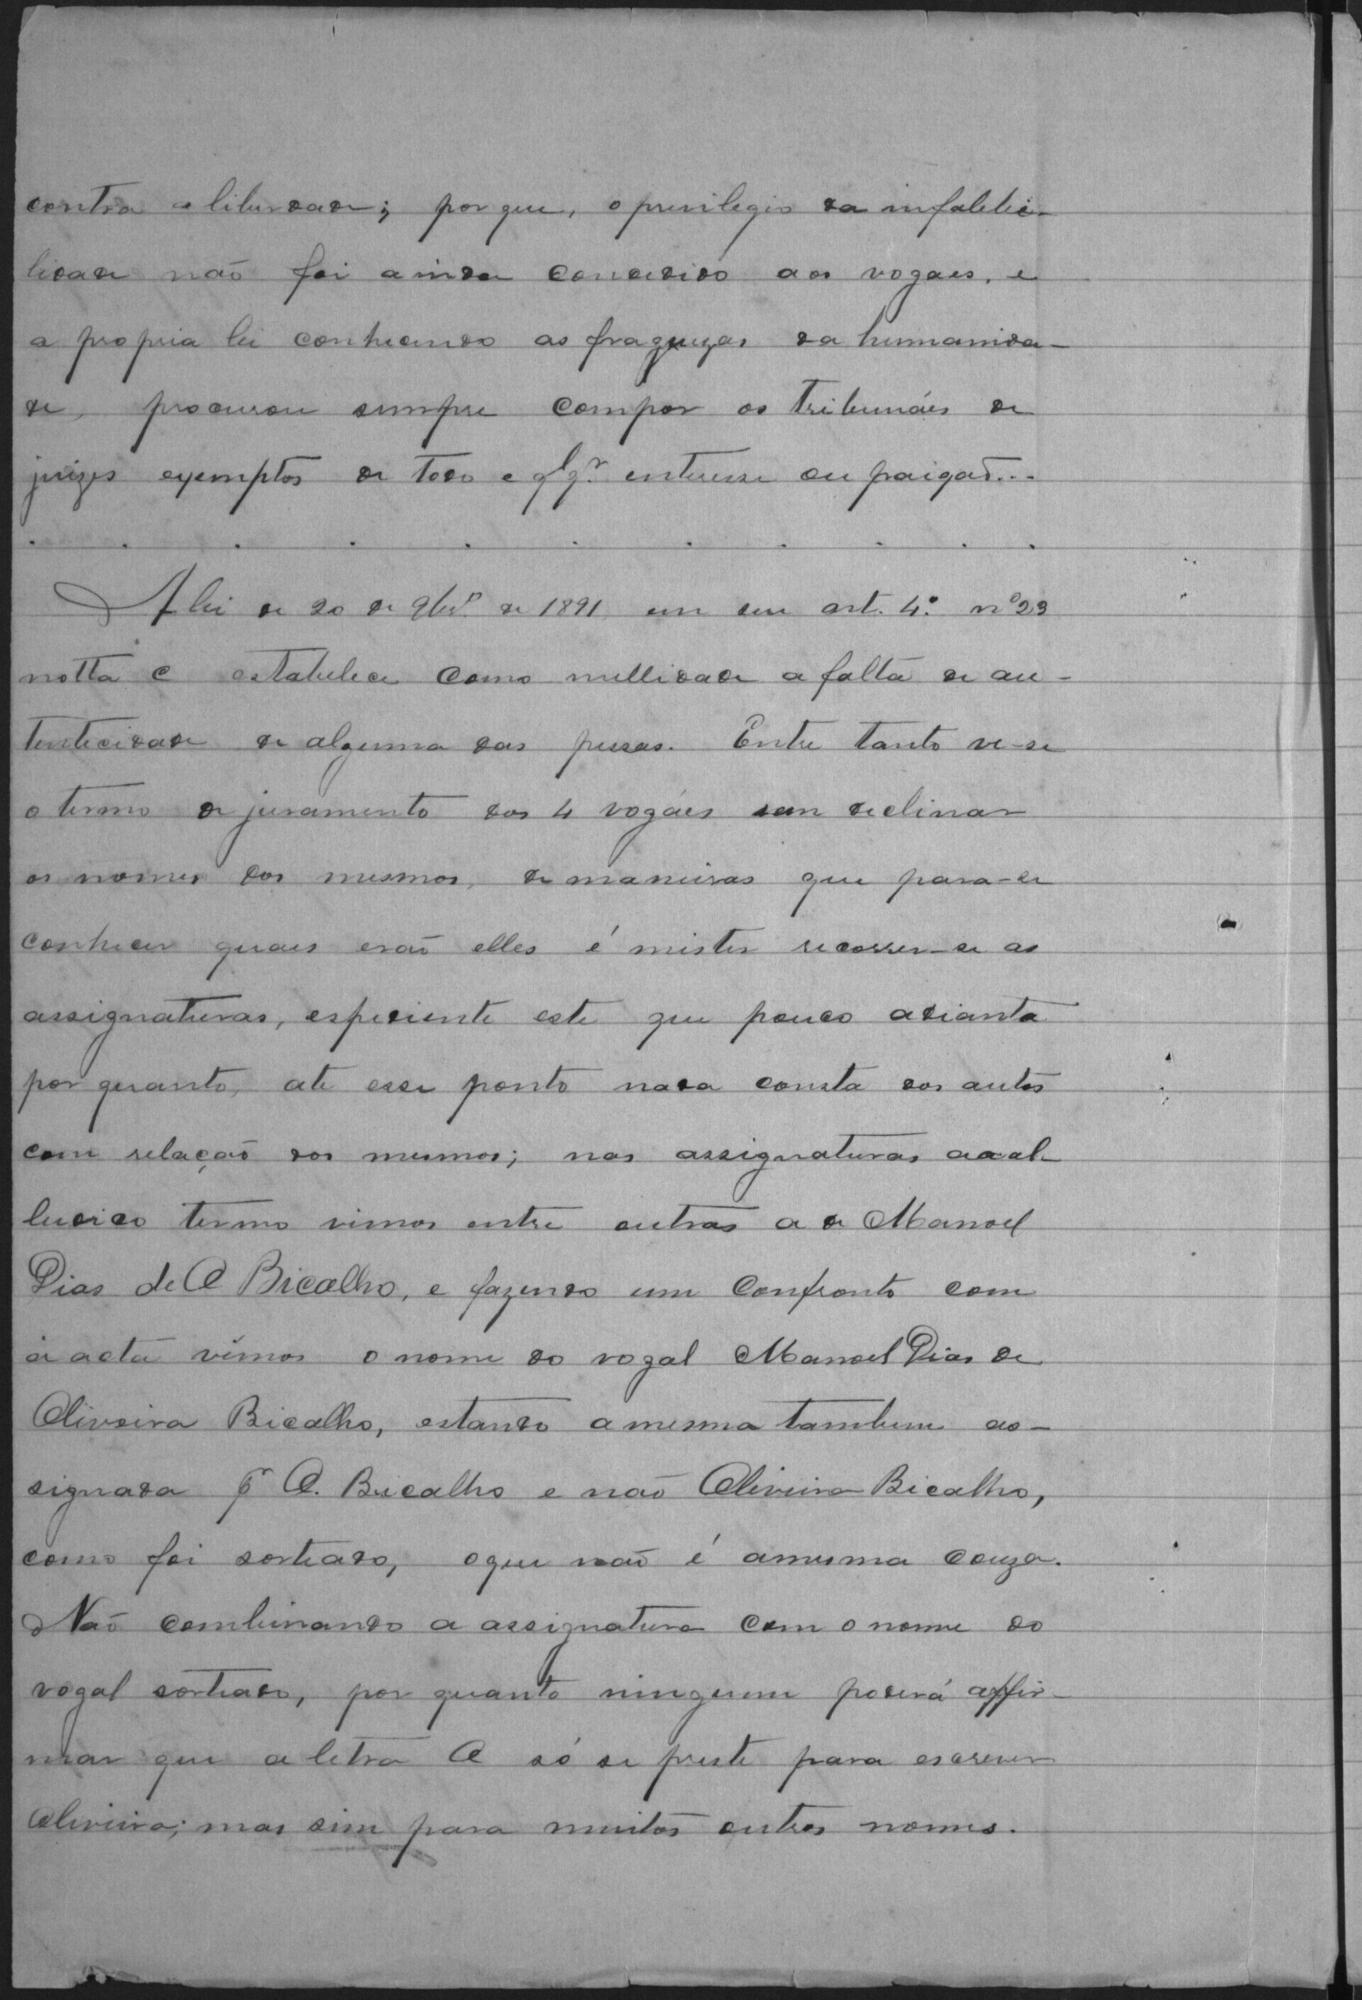 contra a liberdade; por que, o previlegio da infalebe-
lidade não foi ainda concedido aos vogaes, e
a propria lei conhecendo as fraquezas da humanida-
de, procurou sempre compor os Tribunáes de
juizes exemptos de todo e qlqr. enteresse ou paixão...
. . . . . . . . . . .
A lei de 20 de 9brº de 1891 em seu art. 4º nº 23
notta C estabelece como nullidade a falta de au-
tenticidade de alguma das pessas. Entre tanto ve-se
o termo de juramento dos 4 vogáes sem declinar
os nomes dos mesmos, de maneiras que para-se
conhecer quaes erão elles é mister recorrer-se as
assignaturas, espediente este que pouco adianta
por quanto, até esse ponto nada consta dos autos
com relação dos mesmos; nas assignaturas do al-
ludido termo vimos entre outras a de Manoel
Dias de O Bicalho, e fazendo um confronto com
a acta vimos o nome do vogal Manoel Dias de
Oliveira Bicalho, estando a mesma tambem as-
signada pr O. Bicalho e não Oliveira Bicalho,
como foi sorteado, o que não é a mesma couza.
Não combinando a assignatura com o nome do
vogal sorteado, por quanto ninguem poderá affir-
mar que a letra O só se preste para escrever
Oliveira; mas sim para muitos outros nomes.